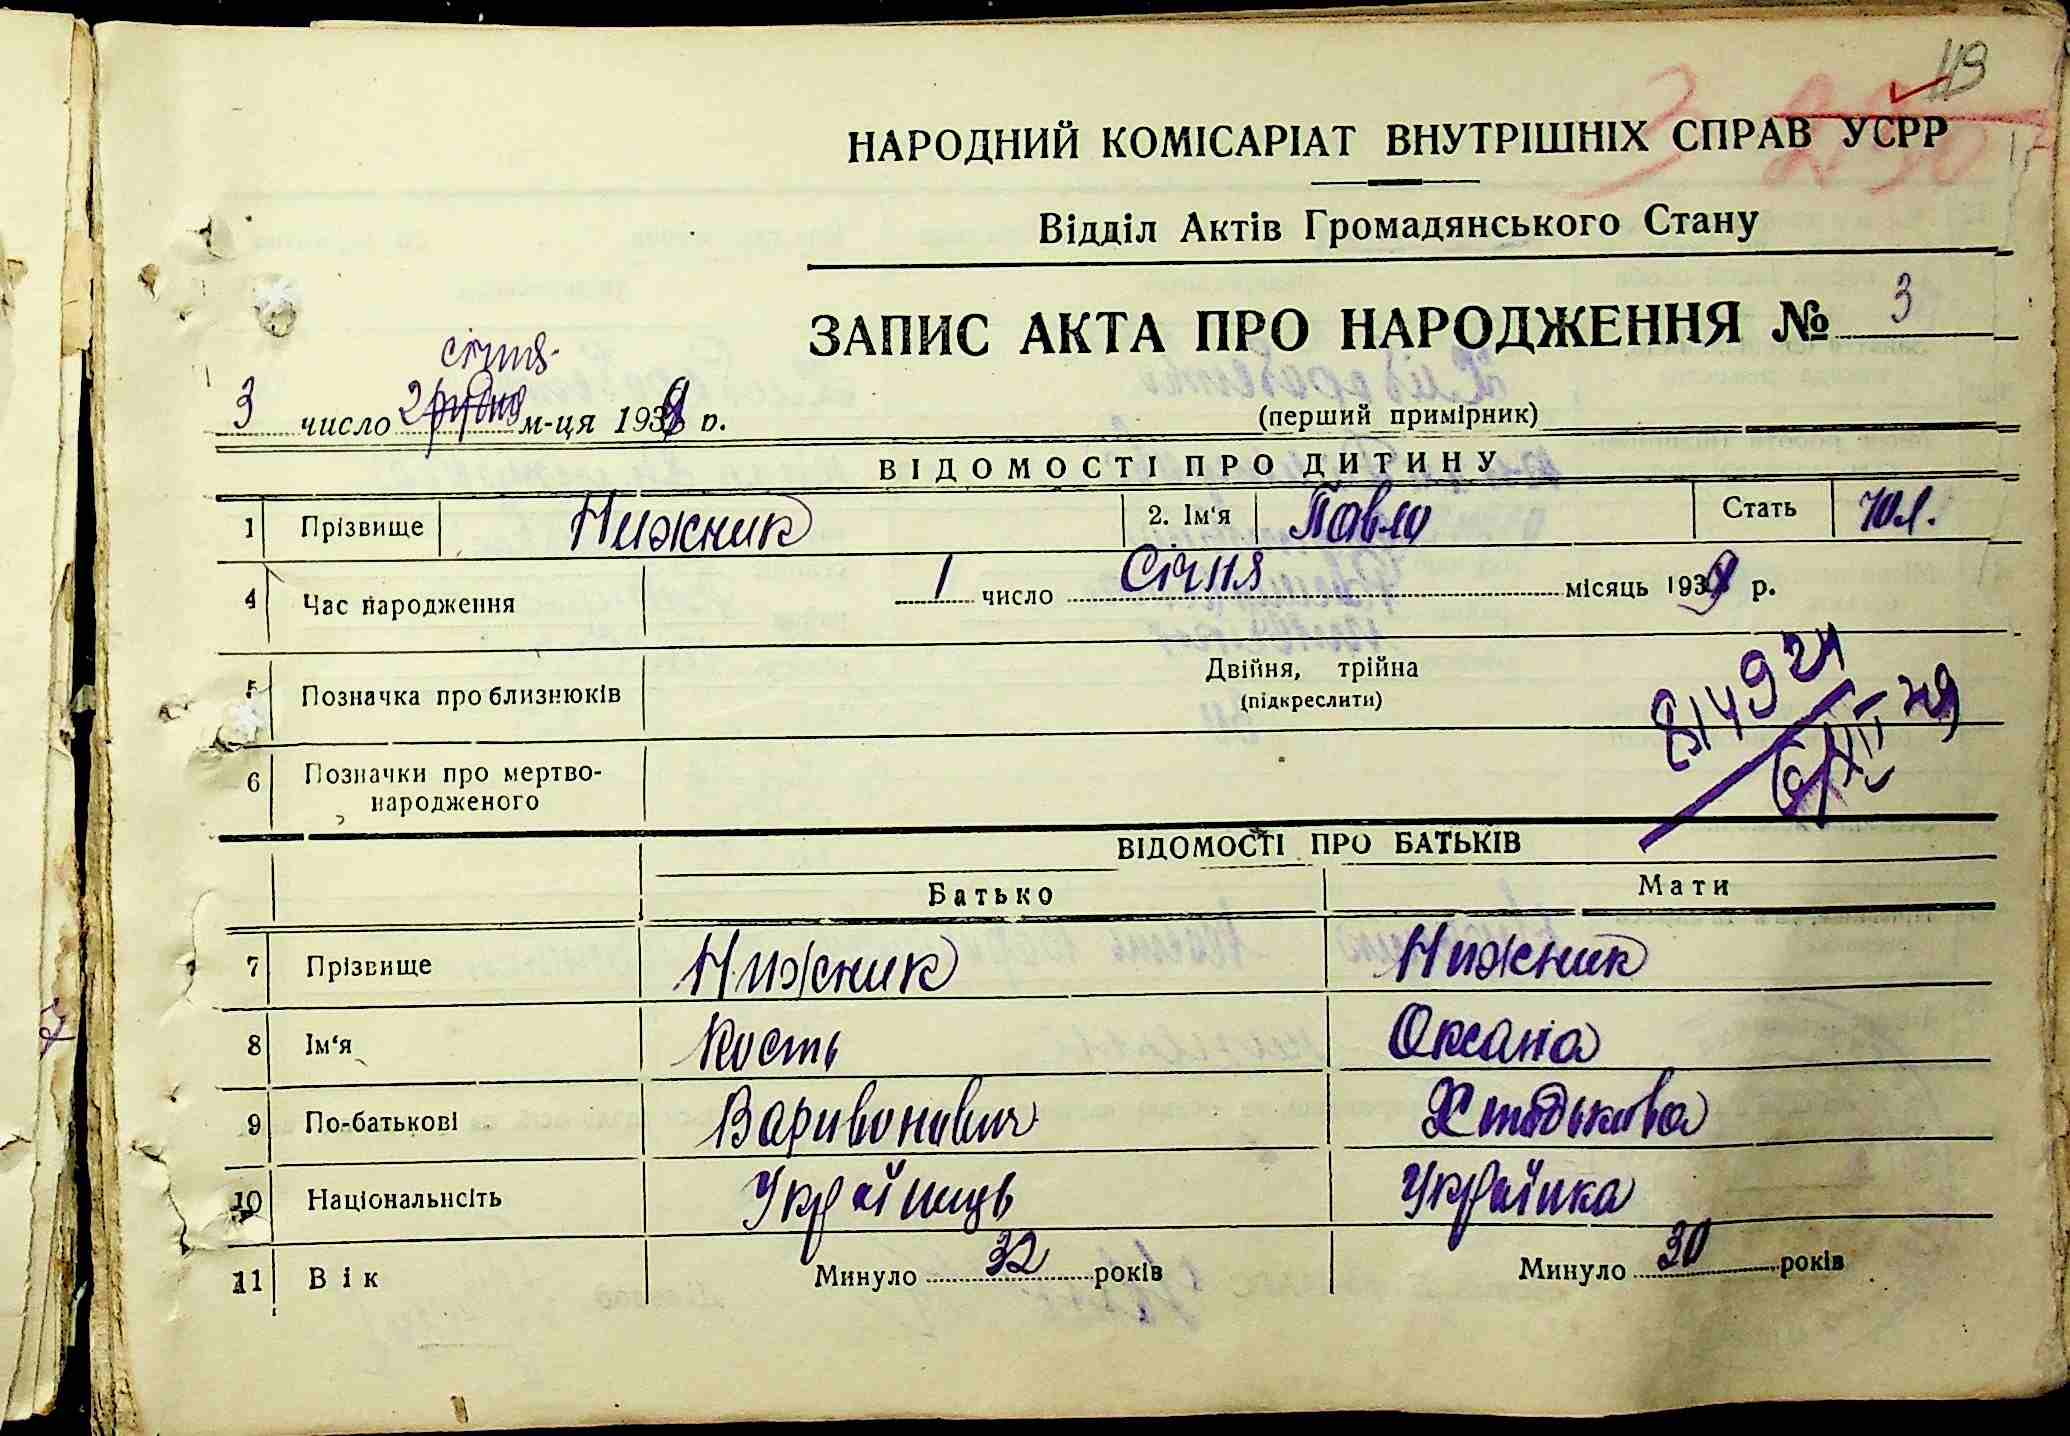 НАРОДНИЙ КОМІСАРІАТ ВНУТРІШНІХ СПРАВ УСРР
Відділ Актів Громадянського Стану
ЗАПИС АКТА ПРО НАРОДЖЕННЯ № 3
січня
3 число грудня м-ця 1939 р.
(перший примірник)
ВІДОМОСТІ ПРО ДИТИНУ
1 Прізвище Нижник 2. Ім'я Павло Стать чол.
4 Час народження 1 число Січня місяць 1939 р.
5 Позначка про близнюків Двійня, трійна
(підкреслити)
6 Позначки про мертво-
народженого
ВІДОМОСТІ ПРО БАТЬКІВ
Батько Мати
7 Прізвище Нижник Нижник
8 Ім'я Кость Оксана
9 По-батькові Варивонович
10 Національнсіть Українець Українка
11 Вік Минуло 32 років Минуло 30 років